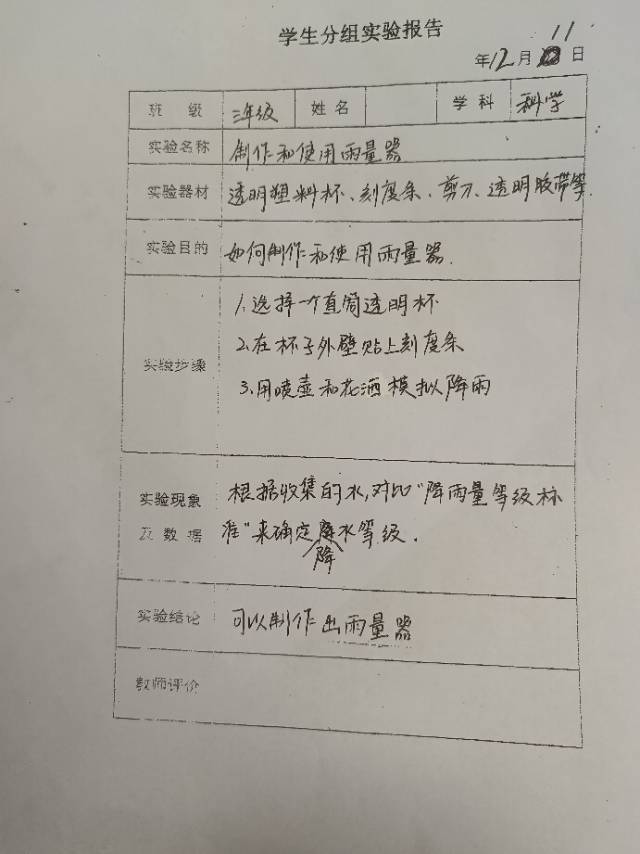 学生分组实验报告
年12月11日
班 级 三年级 姓名 学科 科学
实验名称 制作和使用雨量器
实验器材 透明塑料杯、刻度条、剪刀、透明胶带等
实验目的 如何制作和使用雨量器.
1.选择一个直筒透明杯
2.在杯子外壁贴上刻度条
实验步骤
3.用喷壶和花洒模拟降雨
实验现象 根据收集的水,对比“降雨量等级标
及数据 准”来确定降水等级.
实验结论 可以制作出雨量器
教师评价